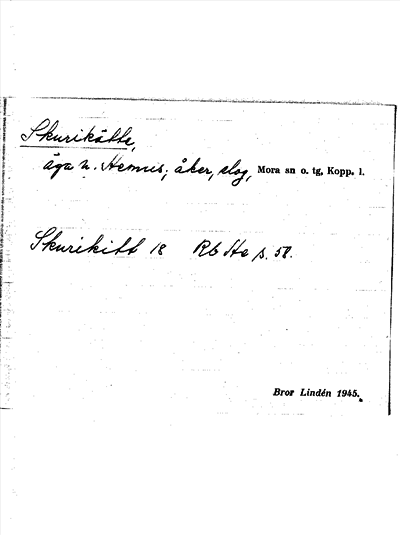 Skurikätte,
äga n. Hemus; åker, slog, Mora sn o. tg, Kopp. l.
Skurikitt 18 Rb He p. 58.
Bror Lindén 1945.